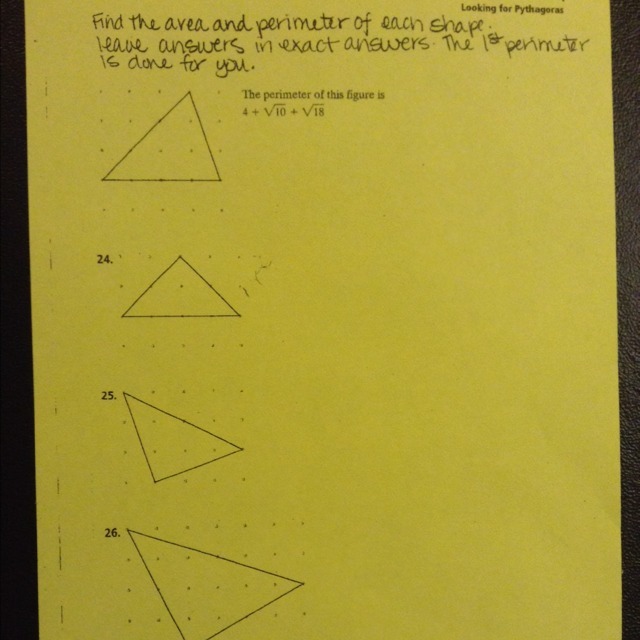 Looking for Pythagoras
Find the area and perimeter of each shape.
leave answers in exact answers. The 1st perimeter
is done for you.
The perimeter of this figure is
4 + √10 + √18
24.
25.
26.